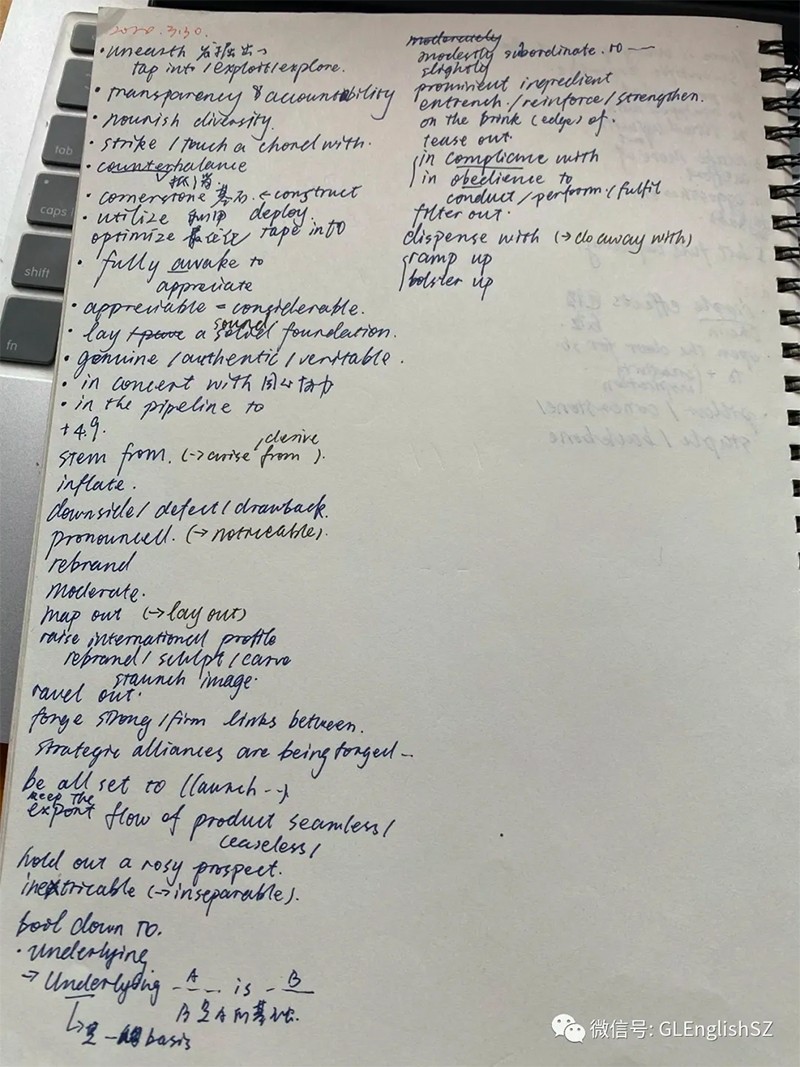 2020.3.30.
• unearth 发掘出
tap into / exploit / explore.
• transparency & accountability
• nourish diversity.
• strike / touch a chord with.
• counterbalance
抵消.
• cornerstone 基石. ← construct
• utilize 利用 deploy.
optimize 最优化 tape into
• fully awake to
appreciate
• appreciable = considerable.
sound
• lay a solid foundation.
• genuine / authentic / veritable.
• in concert with
• in the pipeline to
+4.9.
, derive
stem from. (→ arise from).
inflate.
downside / defect / drawback.
pronounced. (→ noticeable).
rebrand
moderate.
map out (→ lay out)
raise international profile
rebrand / sculpt / carve
staunch image.
ravel out.
forge strong / firm links between.
strategic alliances are being forged –
be all set to (launch --)
keep the
export flow of product seamless /
ceaseless /
hold out a rosy prospect.
inextricable (→ inseparable).
boil down to.
• underlying
→ Underlying A is B
B是A的基础.
basis
moderately
modestly subordinate to —
slightly
prominent ingredient
entrench. / reinforce / strengthen.
on the brink (edge) of.
tease out.
in compliance with
in obedience to
conduct / perform / fulfil
filter out.
dispense with (→ do away with)
ramp up
bolster up
tab
caps
shift
fn
微信号: GLEnglishSZ